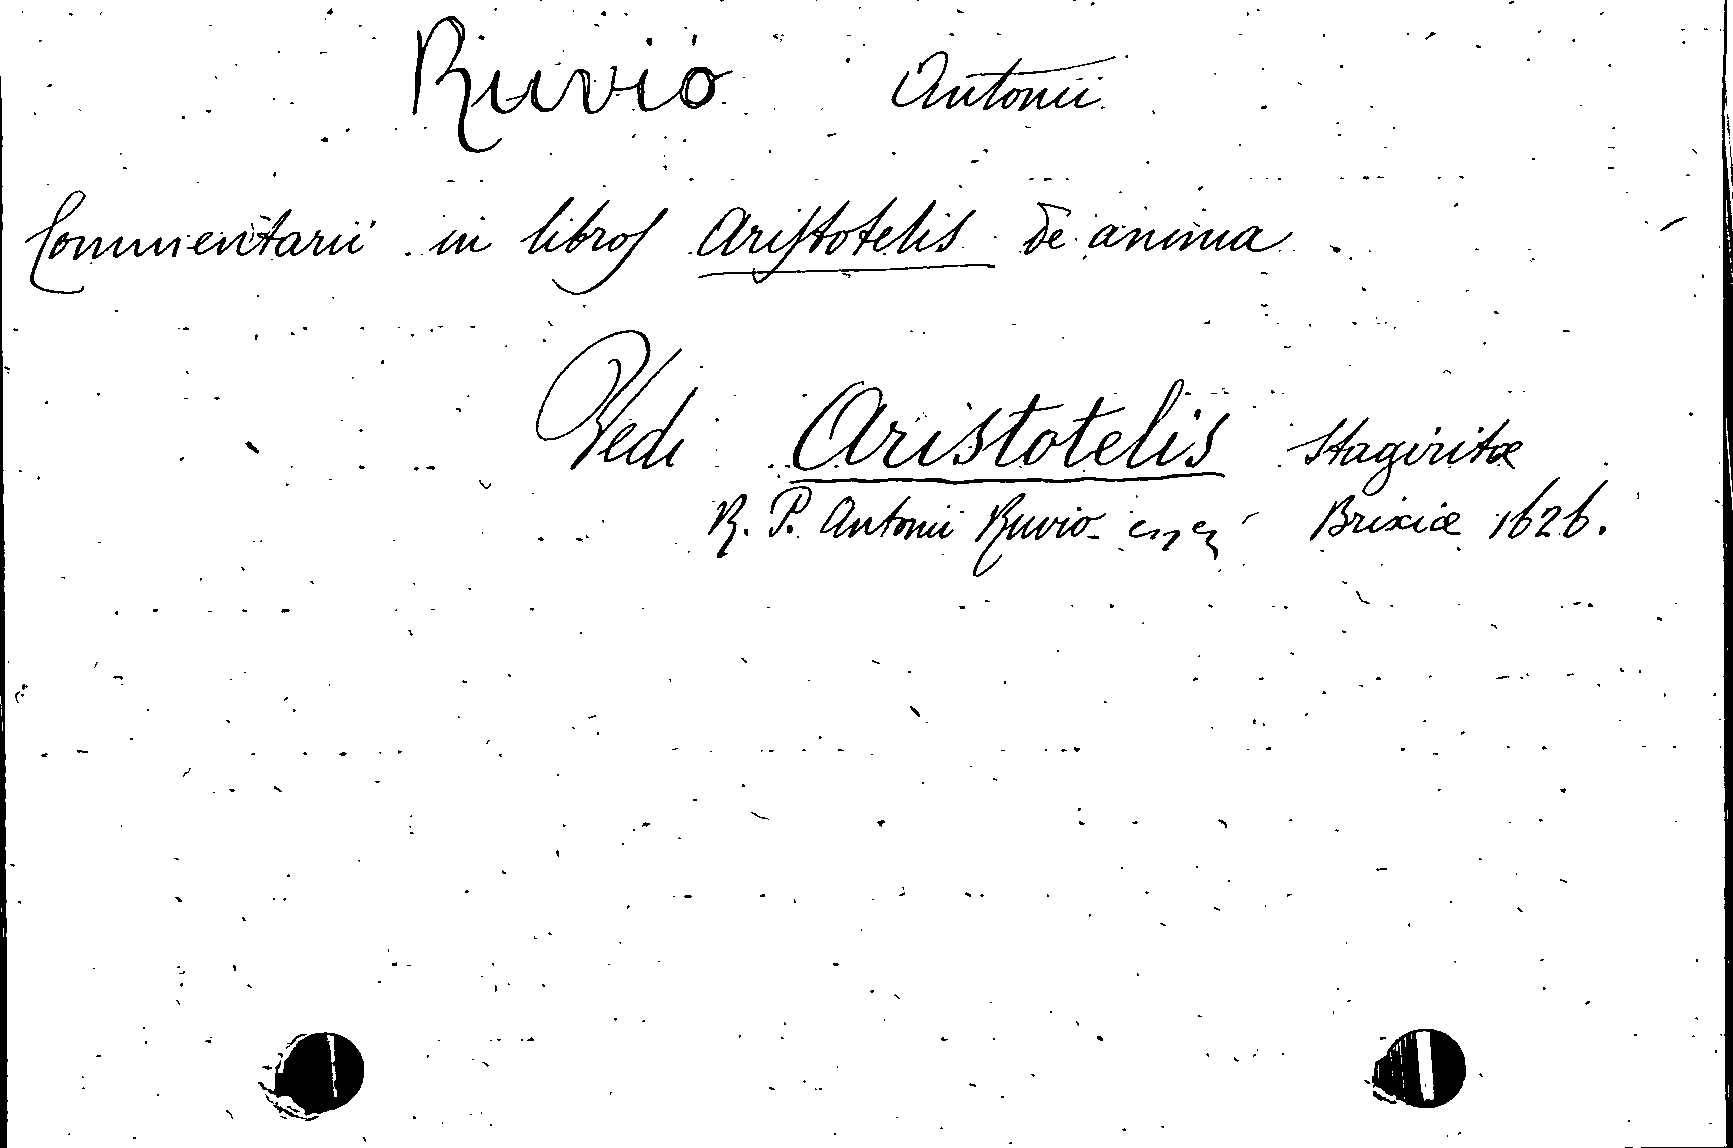 Ruvio Antonii
Commentarii in libros Aristotelis de anima.
Vedi Aristotelis Stagiritæ
R. P. Antonii Ruvio Brixiæ 1626.